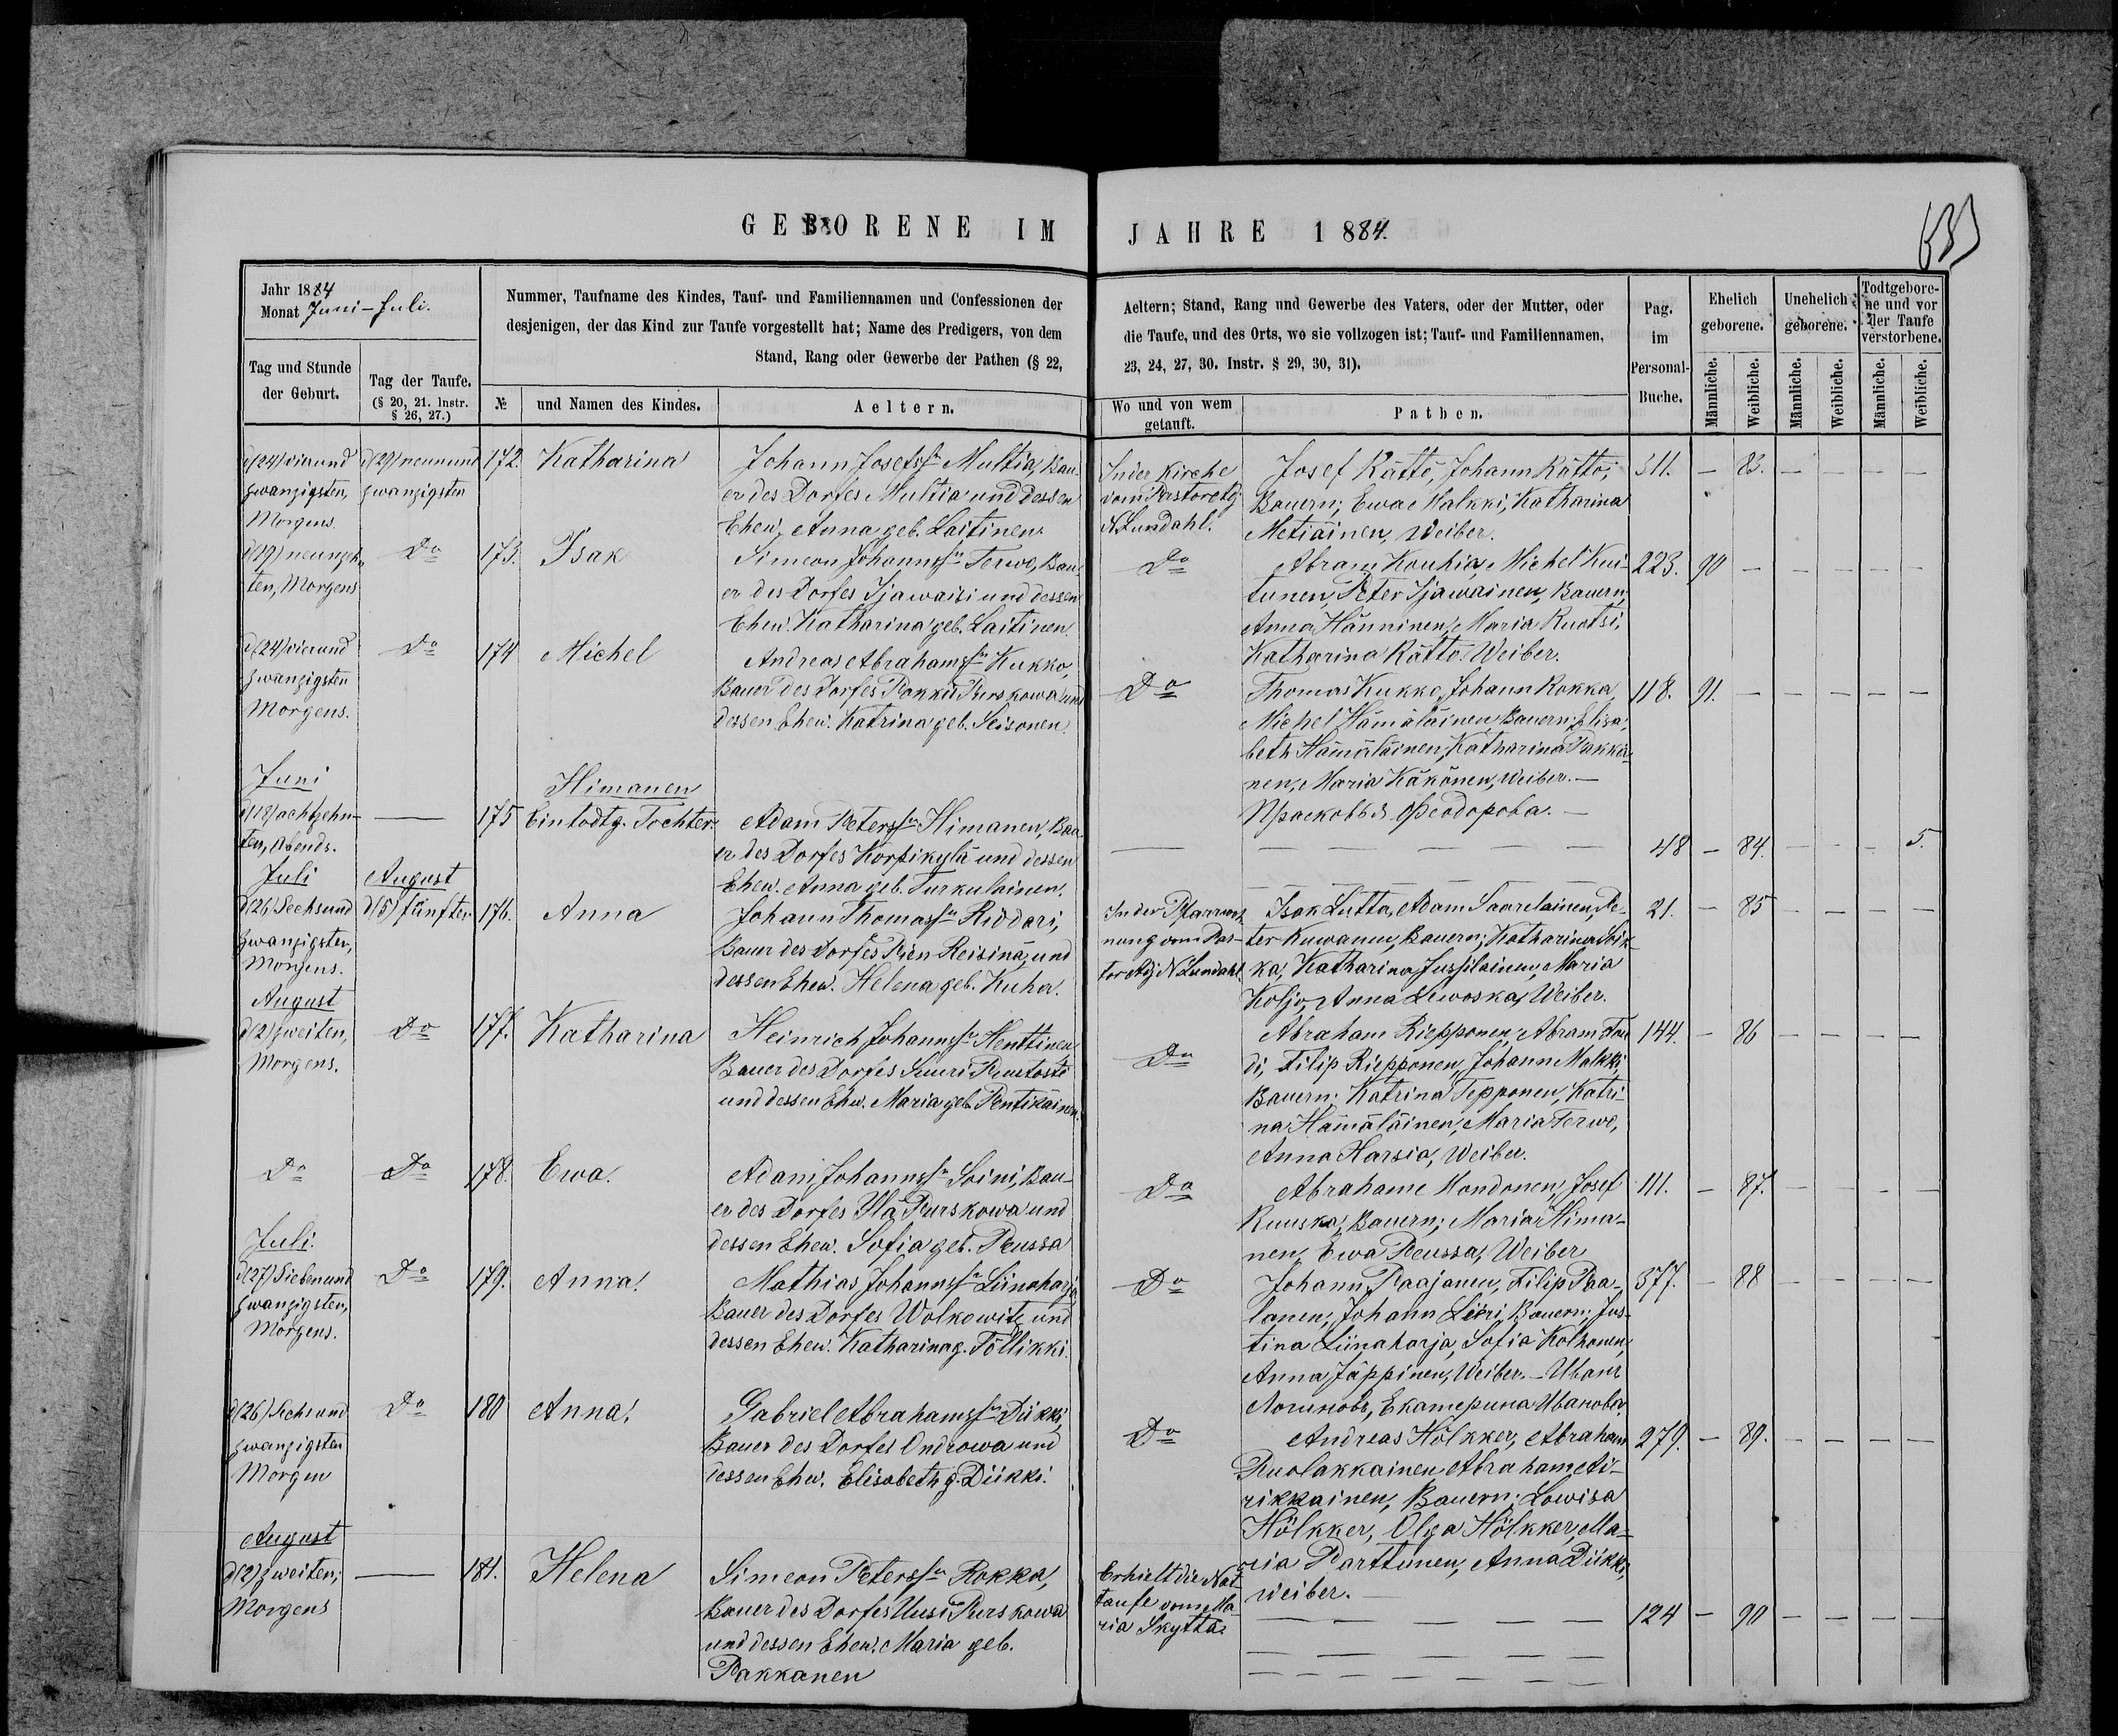 GEBORENE IM JAHRE 1884.
Jahr 1884
Monat Juni-Juli.
Tag und Stunde
der Geburt.
Tag der Taufe.
(§ 20, 21. Instr.
§ 26, 27.)
Nummer, Taufname des Kindes, Tauf- und Familiennamen und Confessionen der
desjenigen, der das Kind zur Taufe vorgestellt hat; Name des Predigers, von dem
Stand, Rang oder Gewerbe der Pathen (§ 22,
№
und Namen des Kindes.
Aeltern.
Aeltern; Stand, Rang und Gewerbe des Vaters, oder der Mutter, oder
die Taufe, und des Orts, wo sie vollzogen ist; Tauf- und Familiennamen,
23, 24, 27, 30. Instr. § 29, 30, 31).
Wo und von wem
getauft.
Pathen.
Pag.
im
Personal-
Buche.
Ehelich
geborene.
Unehelich
geborene.
Todtgebore-
ne und vor
der Taufe
verstorbene.
Männliche.
Weibliche.
Männliche.
Weibliche.
Männliche.
Weibliche.
d(24) vierund
zwanzigsten,
Morgens.
d(29) neunund
zwanzigsten
172.
Katharina
Johann Josefssn Multia, Bau-
er des Dorfes Multia und dessen
Ehew. Anna geb. Laitinen.
In der Kirche
vom Pastor Adj
N Lundahl.
Josef Rättö, Johann Rättö,
Bauern; Ewa Malkki, Katharina
Metiäinen, Weiber.
311. — 83. — — — —
d(19) neunzehn
ten, Morgens
Do
173.
Isak
Simeon Johannssn Terwo, Bau-
er des Dorfes Sjawaisi und dessen
Ehew. Katharina geb. Laitinen.
Do
Abram Kouhia, Michel Kui-
tunen, Peter Sjawainen, Bauern;
Anna Hänninen, Maria Ruotsi,
Katharina Rättö Weiber.
223. 90 — — — — —
d(24) vierund
zwanzigsten
Morgens.
Do
174
Michel
Andreas Abrahamssn Kukko,
Bauer des Dorfes Rokka Purskowa und
dessen Ehew. Katrina geb. Seisonen.
Do
Thomas Kukko, Johann Rokka,
Michel Hämäläinen Bauern; Elisa-
beth Hämäläinen, Katharina Pakka-
nen, Maria Käkönen, Weiber. —
Прасковья Феодорова. —
118. 91. — — — — —
Juni
d(18) achtzehn-
ten, Abends.
—
175
Himanen
Ein todtg. Tochter.
Adam Peterssn Himanen, Bau-
er des Dorfes Korpikylä und dessen
Ehew. Anna geb. Turkulainen.
48 — 84. — — — 5.
Juli
d(26) Sechsund
zwanzigsten,
Morgens.
August
d(5) fünften
176.
Anna
Johann Thomassn Riddari,
Bauer des Dorfes Pien Reisinä, und
dessen Ehew. Helena geb. Kuha.
In der Pfarrwoh
nung vom Pas-
tor Adj N Lundahl.
Isak Lutta, Adam Saarelainen, Pe-
ter Kuwanen, Bauern; Katharina Soik-
ka, Katharina Jussilainen, Maria
Koljo, Anna Lewoska, Weiber.
21. — 85 — — — —
August
d(2) zweiten,
Morgens.
Do
177.
Katharina
Heinrich Johannssn Henttinen
Bauer des Dorfes Suuri
und dessen Ehew. Maria geb. Pentikäinen.
Do
Abraham Riepponen, Abram Tau
di, Filip Riepponen, Johann Malkki,
Bauern; Katrina Tepponen, Katri-
na Hämäläinen, Maria Terwo,
Anna Harsia, Weiber.
144. — 86 — — — —
Do
Do
178.
Ewa.
Adam Johannssn Soini, Bau-
er des Dorfes Ylä Purskowa und
dessen Ehew. Sofia geb. Reussa
Do
Abrahame Hondonen, Josef
Ruuska, Bauern; Maria Hima-
nen, Ewa Reussa, Weiber
111. — 87. — — — —
Juli.
d(27) Siebenund
zwanzigsten,
Morgens.
Do
179.
Anna.
Mathias Johannssn Liinaharja
Bauer des Dorfes Wolkowitz und
dessen Ehew. Katharina g. Töllikki.
Do
Johann Raajanen, Filip Paa-
lanen, Johann Lieri, Bauern; Jus-
tina Liinaharja, Sofia Kolhonen,
Anna Jäppinen, Weiber. — Иванъ
Логиновъ, Екатерина Иванова.
377. — 88 — — — —
d(26) Sechsund
zwanzigsten
Morgen
Do
180
Anna.
Gabriel Abrahamssn Diikki,
Bauer des Dorfes Ondrowa und
dessen Ehew. Elisabeth g. Diikki.
Do
Andreas Hölkker, Abraham
Ruolakkainen, Abraham Ai-
rikkainen, Bauern; Lowisa
Hölkker, Olga Hölkker, Ma-
ria Parttunen, Anna Diikki,
Weiber.
279. — 89. — — — —
August
d(2) zweiten,
Morgens
—
181.
Helena
Simeon Peterssn Rokka,
Bauer des Dorfes Uusi Purskowa
und dessen Ehew. Maria geb.
Pakkanen
Erhielt die Not
taufe von Ma-
ria Skyttä.
124 — 90 — — — —